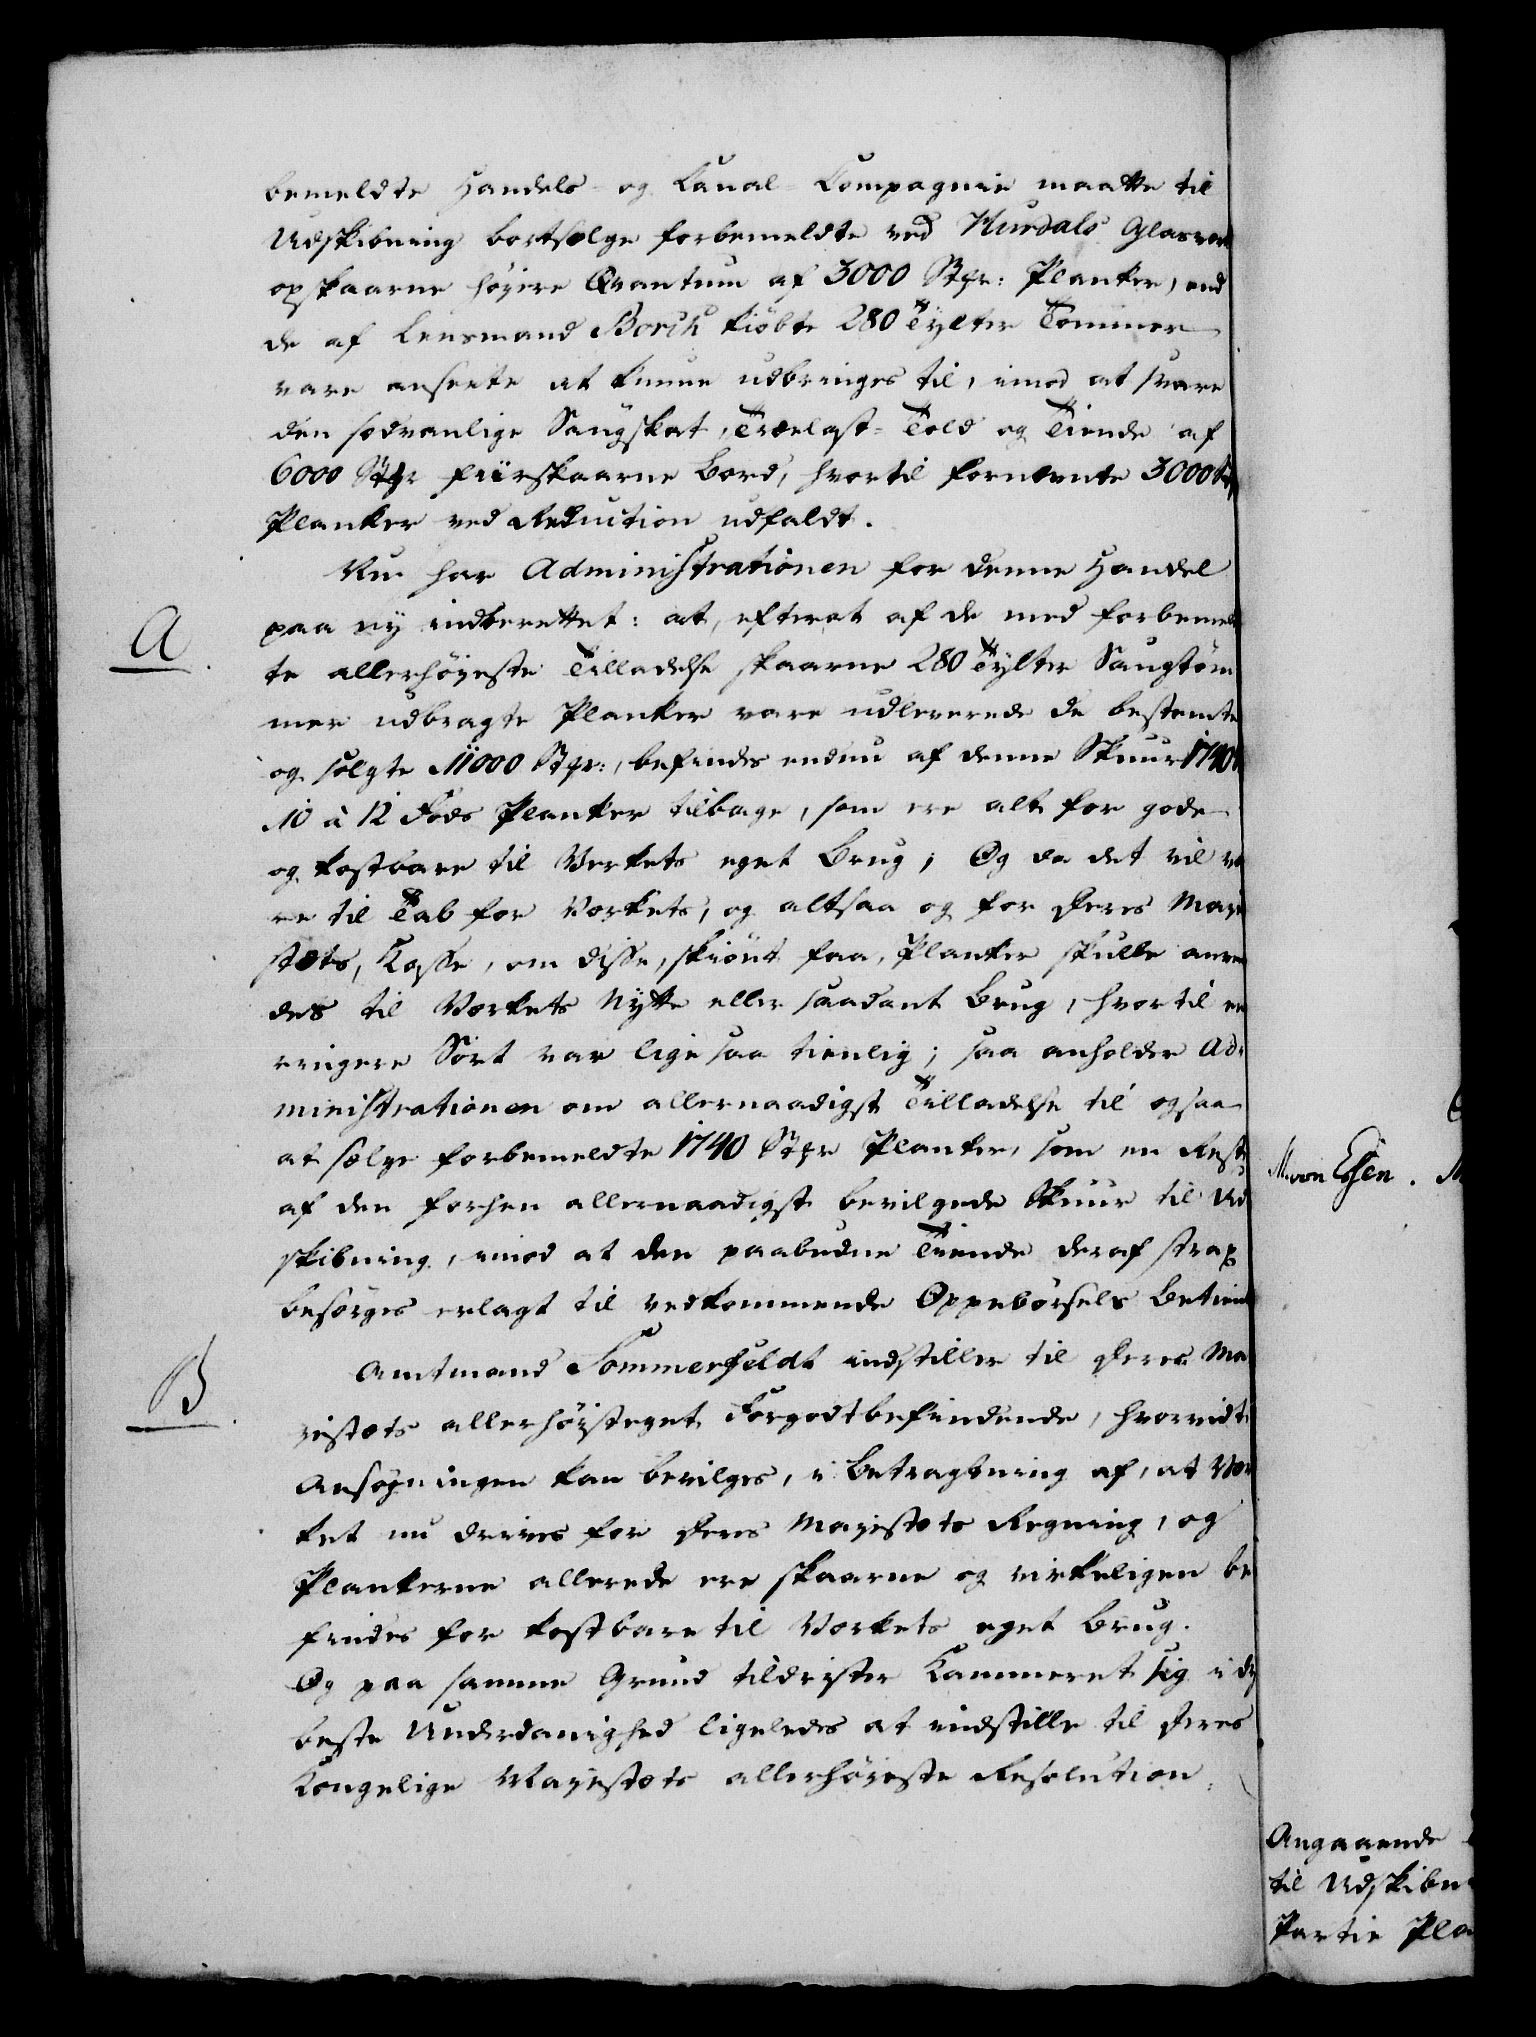 bemeldte Handels- og Canal-Compagnie maatte til
Udskibning bortsælge forbemeldte ved Hurdals Glasverk
opskaarne høyere Qvantum af 3000 Stkr: Planker, end
de af Lensmand Borch kiøbte 280 Tylter Tømmer
vare ansente at kunne udbringes til, imod at svare
den sædvanlige Saugskat, Trælast-Told og Tiende af
6000 Stkr fiirskaarne Bord, hvortil fornevnte 3000
Planker ved Reduction udfaldt.
Nu har Administrationen for denne Handel
A. paa ny indberettet: at, efterat af de med forbemeld
te allerhøyeste Tilladelse skaarne 280 Tylter Saugtøm
mer udbragte Planker vare udleverede de bestemte
og solgte 11000 Stkr:, befindes endnu af denne Skuur 1740
10 à 12 Fods Planker tilbage, som ere alt for gode
og kostbare til Verkets eget Brug; Og da det vil væ
re til Tab for Værkets, og altsaa og for Deres Maje
stæts, Kasse, om disse, skiønt faa, Planker skulle anven
des til Værkets Nytte eller saadant Brug, hvortil en
ringere Sort var lige saa tienlig; saa anholder Ad-
ministrationen om allernaadigst Tilladelse til ogsaa
at sælge forbemeldte 1740 Stkr Planker, som en Rest
af den forhen allernaadigst bevilgede Skuur til Ud
skibning, imod at den paabudne Tiende deraf strax
besørges erlagt til vedkommende Oppebørsels Betient
B. Amtmand Sommerfeldt indstiller til Deres Ma
jestæts allerhøisteget Forgodtbefindende, hvorvidt
Ansøgningen kan bevilges, i Betragtning af, at Vær
ket nu drives for Deres Majestæts Regning, og
Plankerne allerede ere skaarne og virkeligen be
findes for kostbare til Værkets eget Brug.
Og paa samme Grund tildrister Kammeret sig i dy
beste Underdanighed ligeledes at indstille til Deres
Kongelige Majestæts allerhøieste Resolution.
M. von Essen.
Angaaende
til Udskibn
Partie Pla